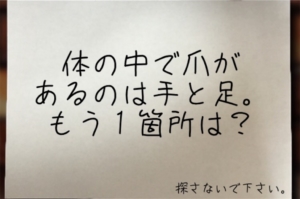 体の中で爪が
あるのは手と足。
もう1箇所は？
探さないで下さい。